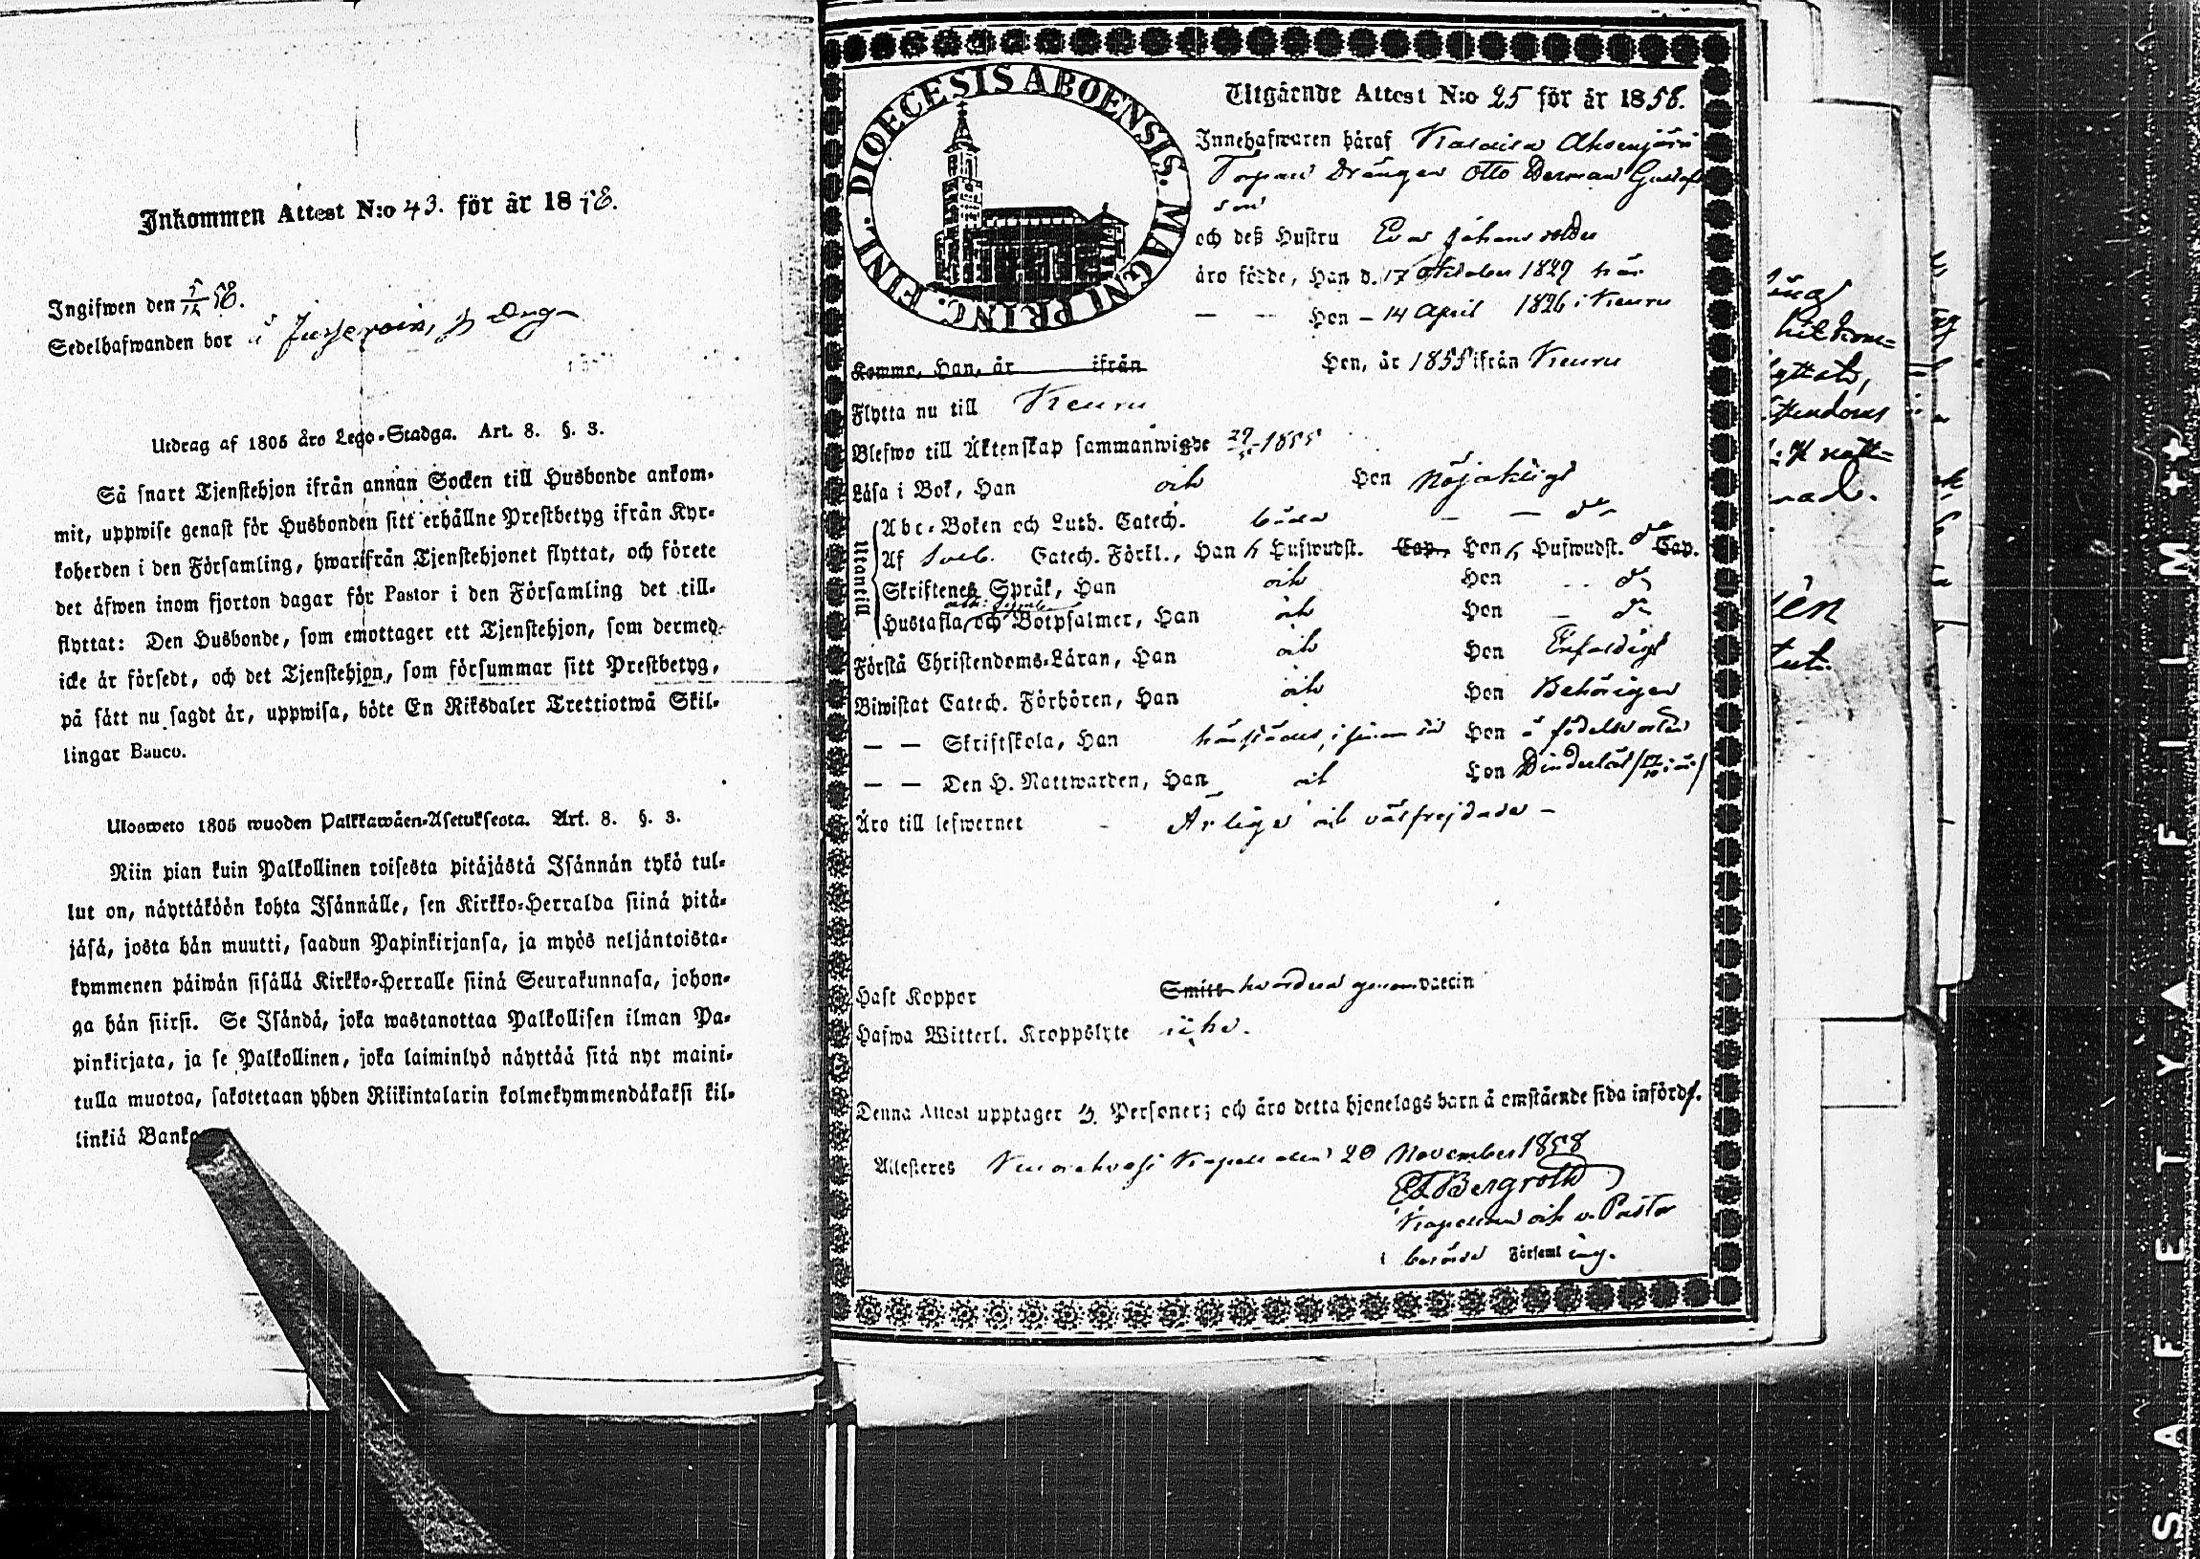 Inkommen Attest N:o 43. för år 1858.
Ingifwen den 5/12 58.
Sedelhafwanden bor å
Utdrag af 1805 åro Lego-Stadga. Art. 8. §. 3.
Så snart Tjenstehjon ifrån annan Socken till Husbonde ankom-
mit, uppwise genast för Husbonden sitt erhållne Prestbetyg ifrån Kyr-
koherden i den Församling, hwarifrån Tjenstehjonet flyttat, och förete
det äfwen inom fjorton dagar för Pastor i den Församling det till-
flyttat: Den Husbonde, som emottager ett Tjenstehjon, som dermed
icke är försedt, och det Tjenstehjon, som försummar sitt Prestbetyg,
på sätt nu sagdt är, uppwisa, böte En Riksdaler Trettiotwå Skil-
lingar Banco.
Ulosweto 1805 wuoden Palkkawäen-Asetuksesta. Art. 8. §. 3.
Niin pian kuin Palkollinen toisesta pitäjästä Isännän tykö tul-
lut on, näyttäköön kohta Isännälle, sen Kirkko-Herralda siinä pitä-
jäsä, josta hän muutti, saadun Papinkirjansa, ja myös neljäntoista-
kymmenen päiwän sisällä Kirkko-Herralle siinä Seurakunnasa, johon-
ga hän siirsi. Se Isändä, joka wastanottaa Palkollisen ilman Pa-
pinkirjata, ja se Palkollinen, joka laiminlyö näyttää sitä nyt maini-
tulla muotoa, sakotetaan yhden Riikintalarin kolmekymmendäkaksi kil-
linkiä Banko
DIOECESIS ABOENSIS. MAGNI PRINC. FINL.
Utgående Attest N:o 25 för år 1858.
Innehafwaren häraf
Torpare Drängen Otto Herman Gustafs
son
och deß Hustru Eva Johansdotter
äro födde, Han d. 17 Oktober 1829 här
— — Hon — 14 April 1826 i Keuru
Komme, Han, år ifrån Hon, år 1855 ifrån Keuru
Flytta nu till Keuru
Blefwo till Äktenskap sammanwigde 1855
Läsa i Bok, Han och Hon Nöjaktigt
Utantill
Abc-Boken och Luth. Catech. båda — — do
Af Sveb. Catech. Förkl., Han 5 Hufwudst. Cap., Hon 5 Hufwudst. do Cap.
Skriftenes Språk, Han och Hon do
Hustafla, och Botpsalmer, Han och Hon — do
Förstå Christendoms-Läran, Han och Hon Enfaldigt
Biwistat Catech. Förhören, Han och Hon Behörigen
— — Skriftskola, Han härstädes, i sinom tid Hon å födelseorten
— — Den H. Nattwarden, Han och Hon
Äro till lefwernet - Ärlige och välfrejdade —
Haft Koppor Smitt genom vaccin
Hafwa Witterl. Kroppslyte icke.
Denna Attest upptager 3. Personer; och äro detta hjonelags barn å omstående sida införde.
Attesteres Kapell den 20 November 1858
Bergroth
Kapellan och v. Pastor
i berörde Församling.
SAFETY FILM